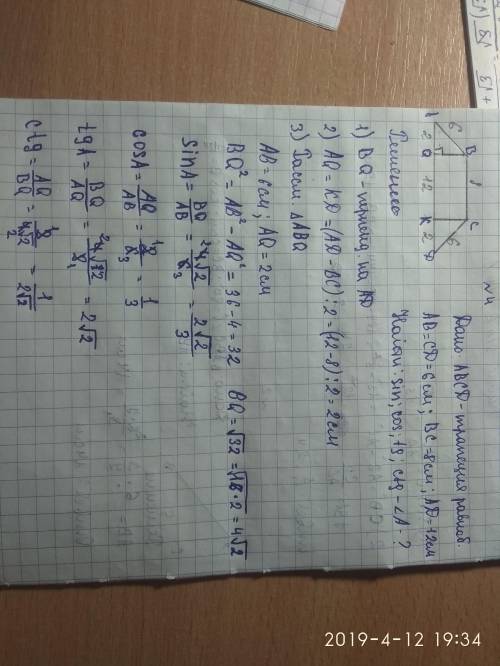 №4
Дано: ABCD-трапеция равноб.
AB=CD=6см; BC=8см; AD=12см
Найти: sin, cos, tg, ctg -∠A-?
B 8 C
6 6
A 2 Q 12 K 2 D
Решение
1) BQ - перпенд. на AD
2) AQ=KD=(AD-BC):2=(12-8):2=2см
3) Рассм. △ABQ
AB=6см; AQ=2см
BQ²=AB²-AQ²=36-4=32 BQ=√32=√16·2=4√2
sinA=BQ/AB=4√2/6=2√2/3
cosA=AQ/AB=2/6=1/3
tgA=BQ/AQ=4√2/2=2√2
ctg=AQ/BQ=2/4√2=1/2√2
2019-4-12 19:34